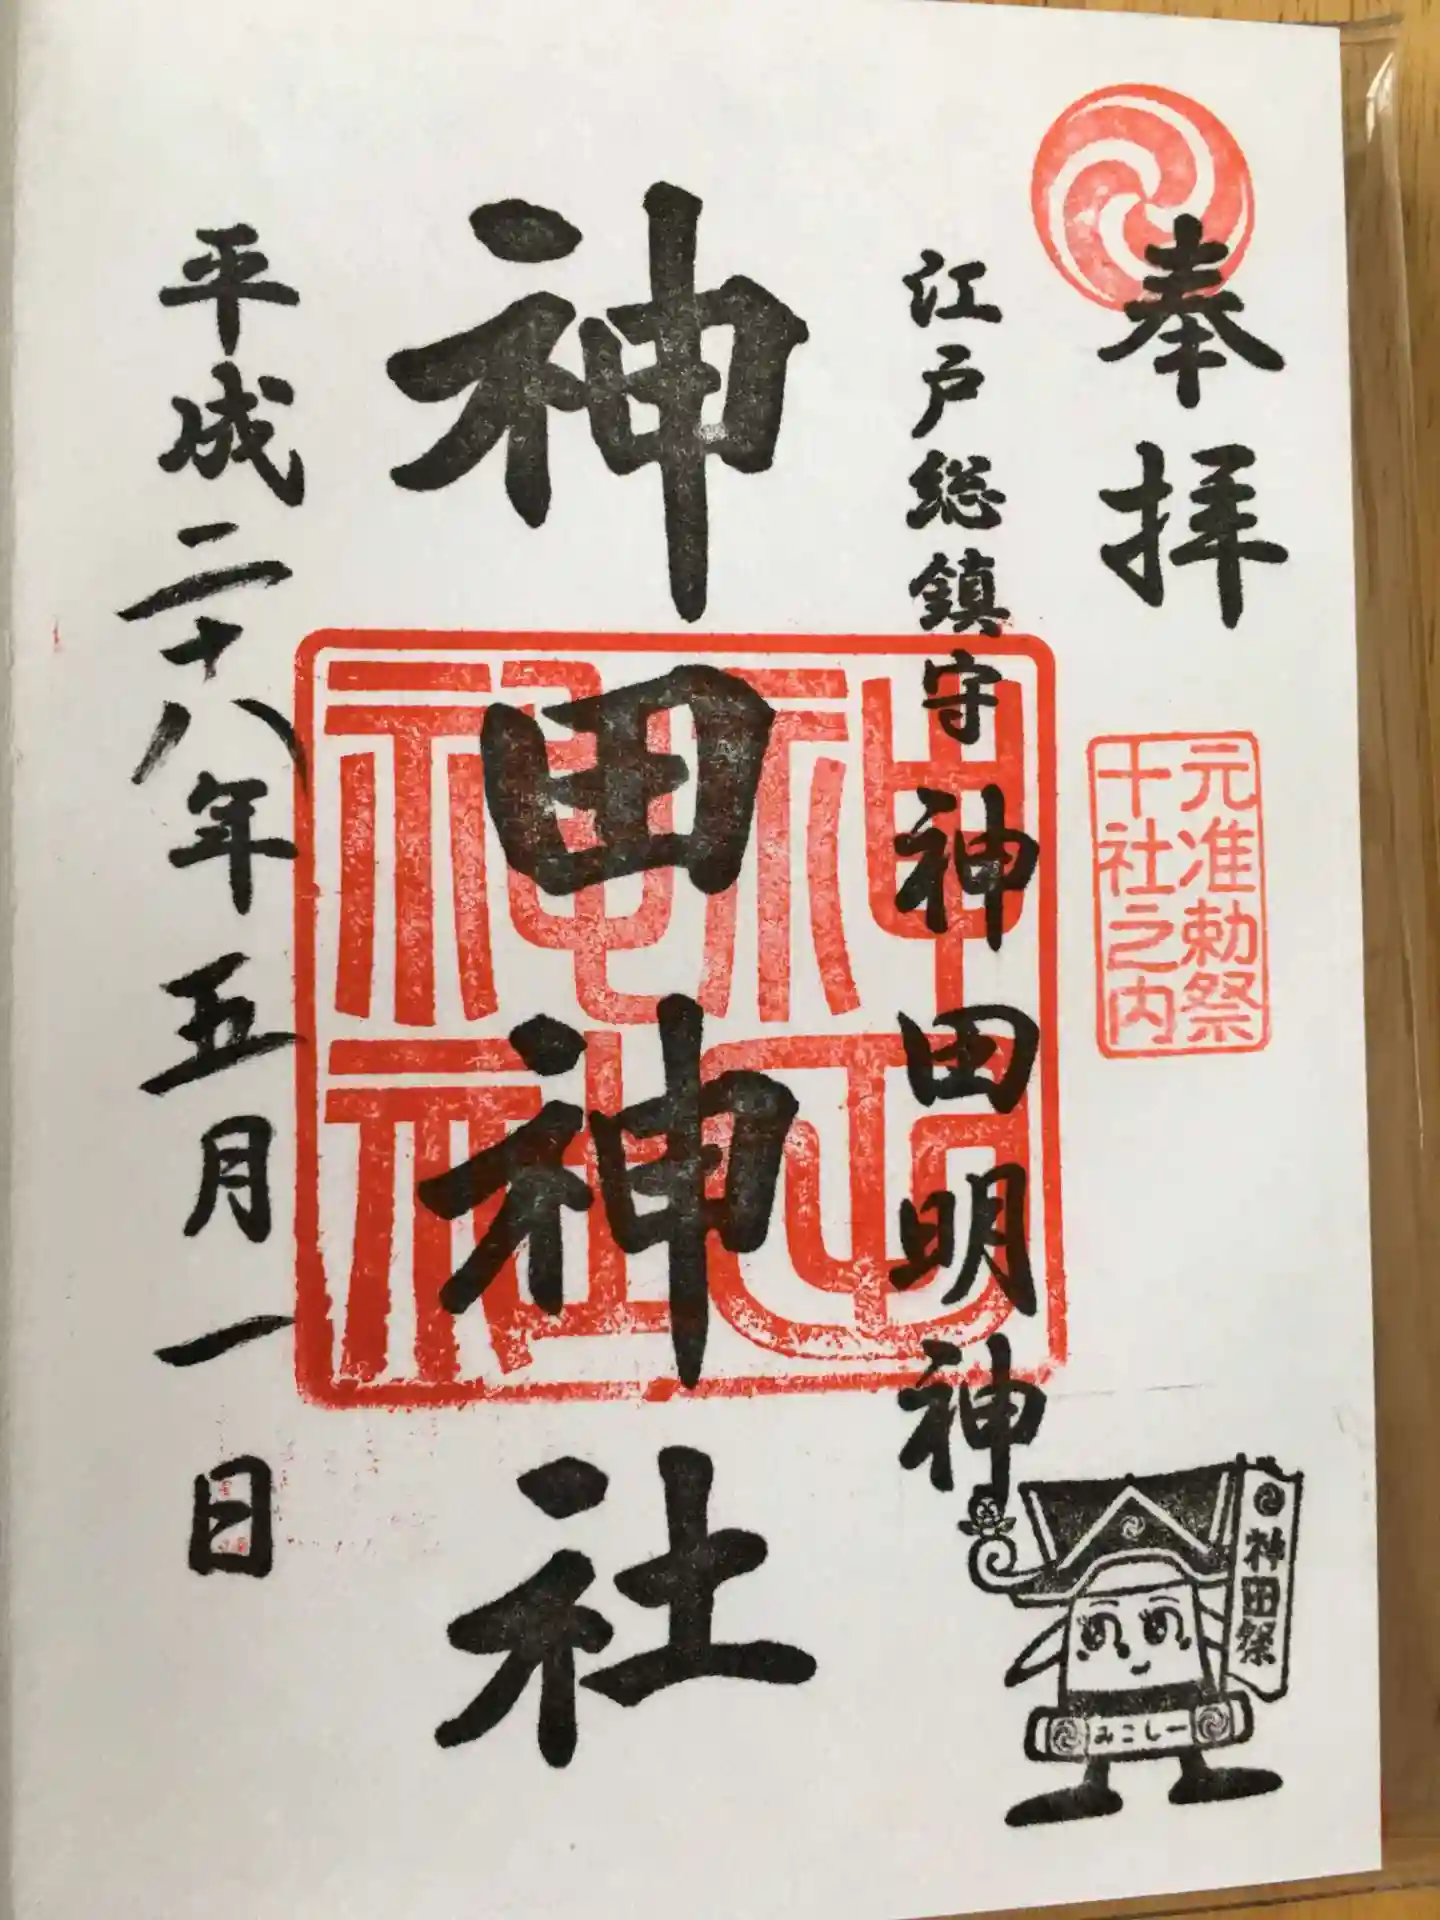 奉拝
元准勅祭
十社之内
江戸総鎮守神田明神
神田神社
平成二十八年五月一日
神田祭
みこしー